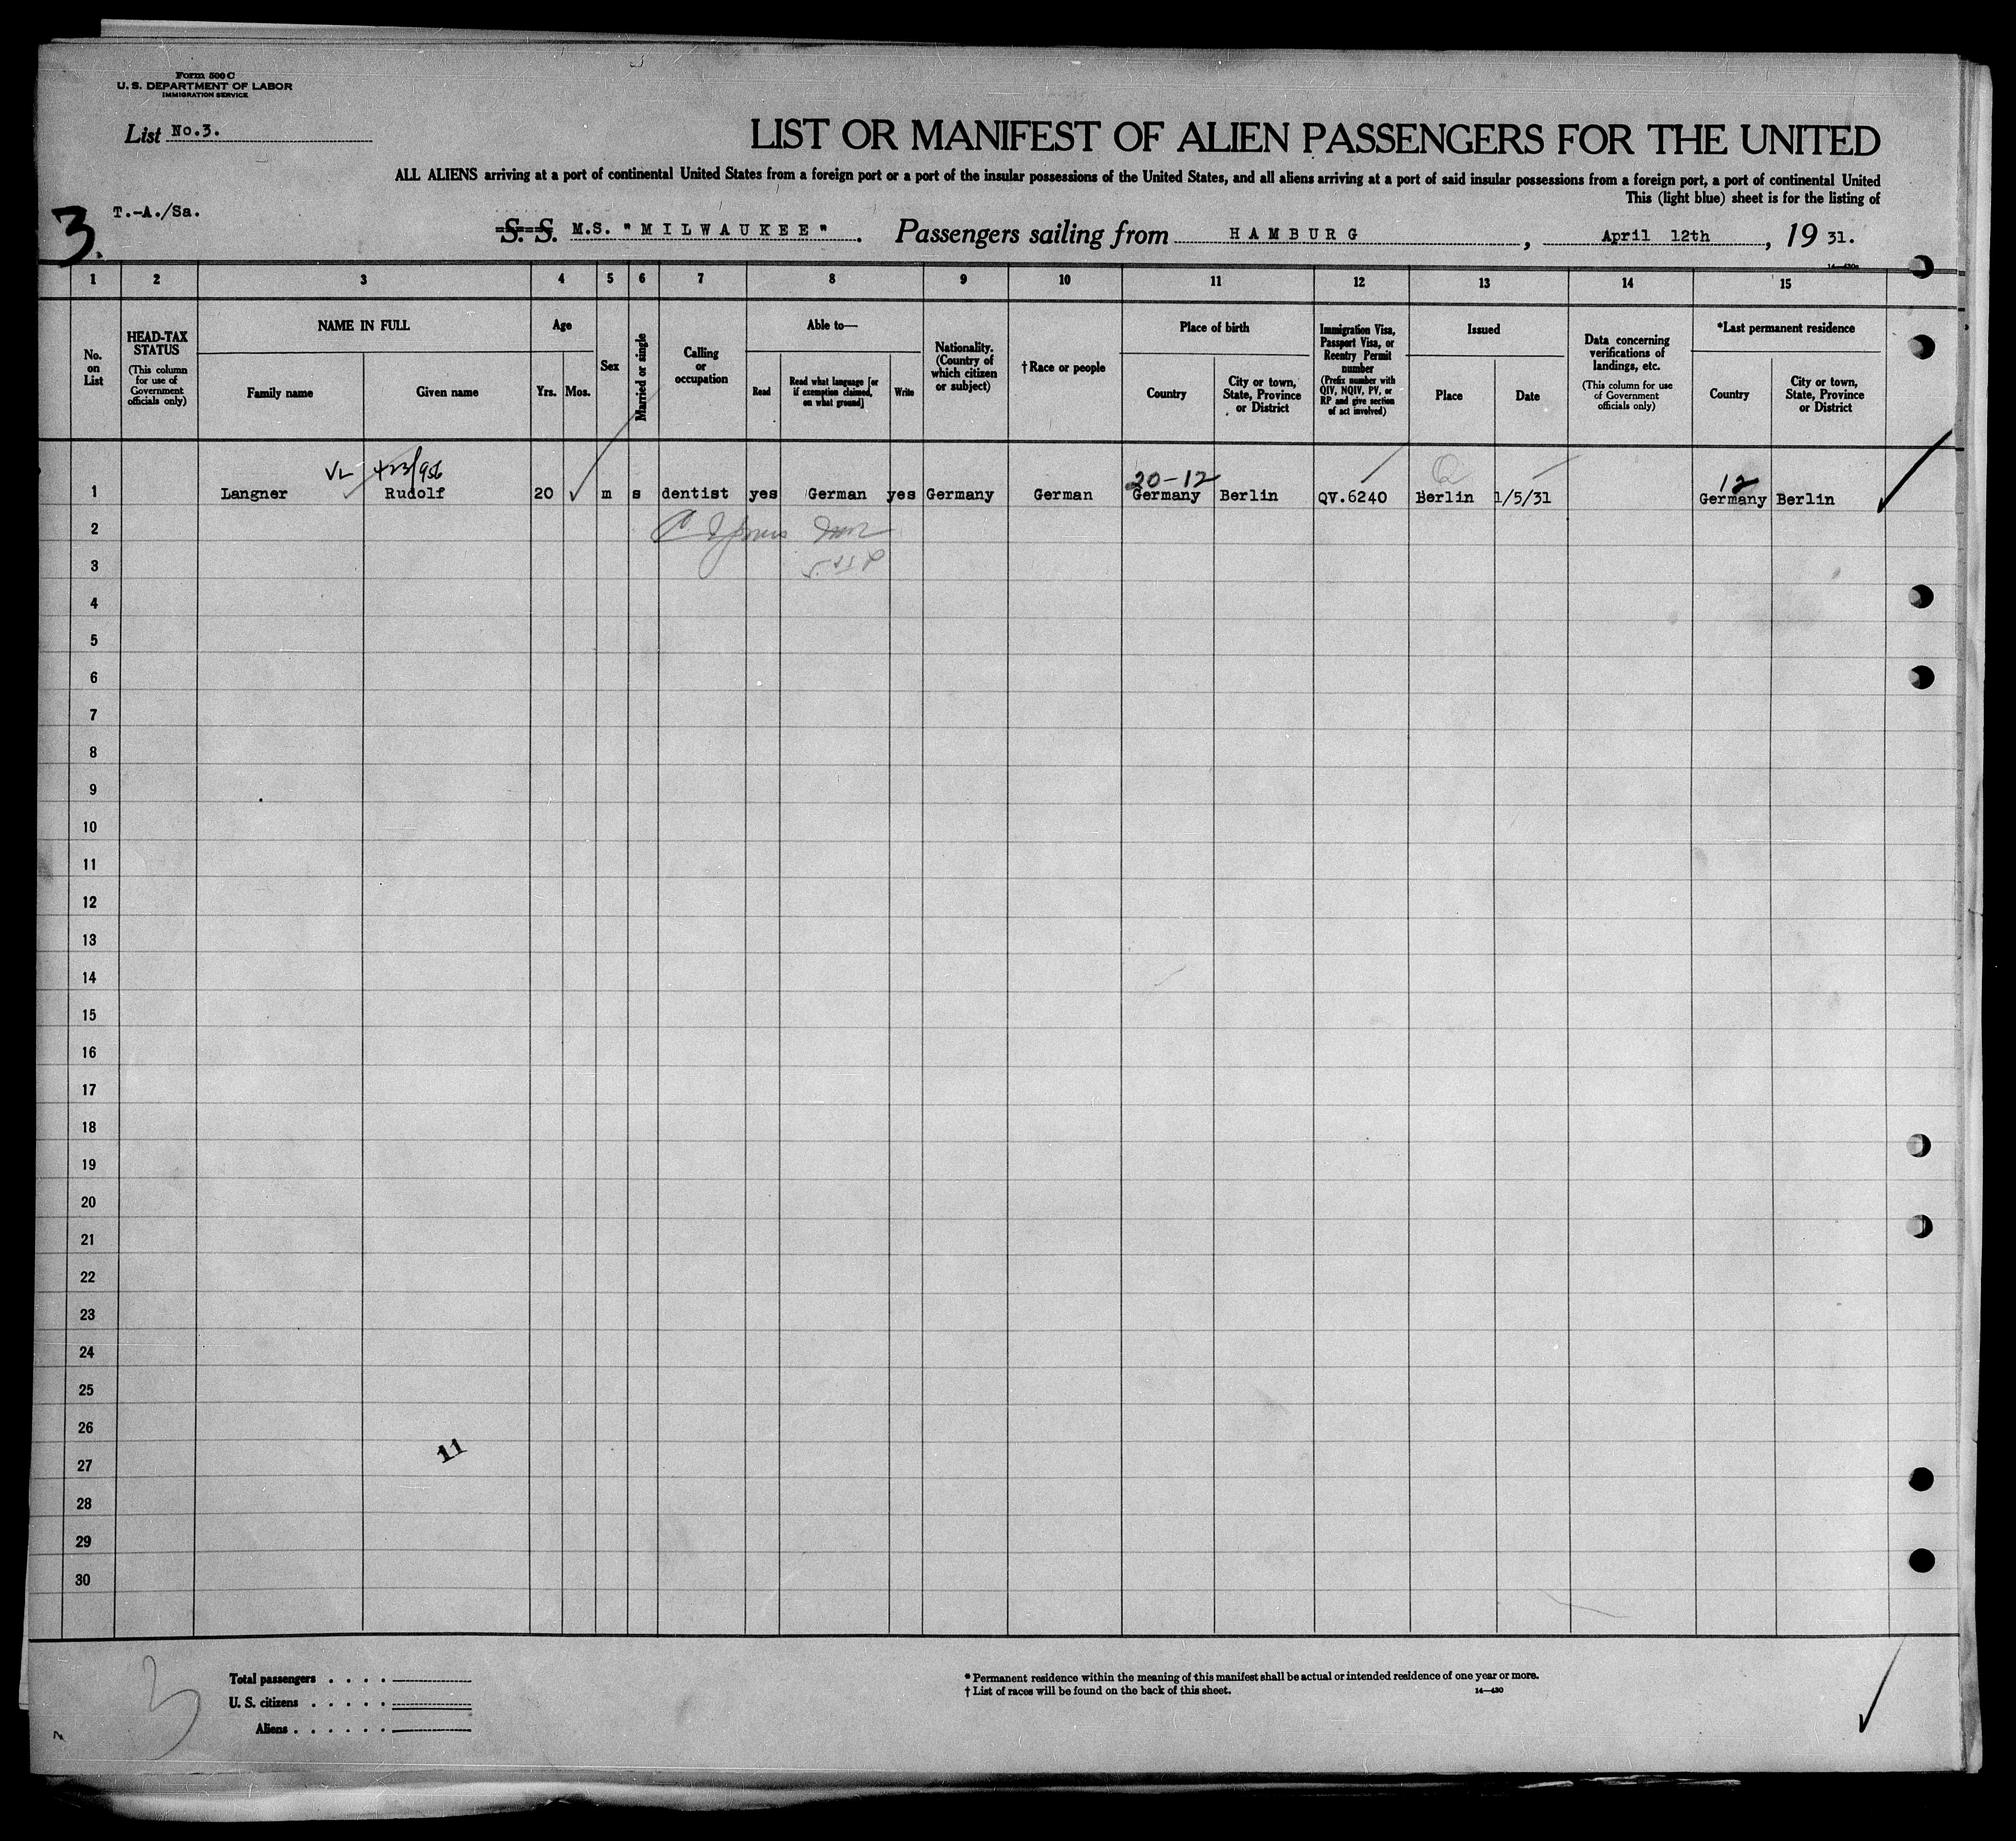 Form 500 C
U. S. DEPARTMENT OF LABOR
IMMIGRATION SERVICE
List No.3.
LIST OR MANIFEST OF ALIEN PASSENGERS FOR THE UNITED
ALL ALIENS arriving at a port of continental United States from a foreign port or a port of the insular possessions of the United States, and all aliens arriving at a port of said insular possessions from a foreign port, a port of continental United
This (light blue) sheet is for the listing of
T.-A./Sa.
3.
S. S. M.S. "MILWAUKEE". Passengers sailing from HAMBURG, April 12th, 19 31.
1 2 3 4 5 6 7 8 9 10 11 12 13 14 15
No. on List
HEAD-TAX STATUS
(This column for use of Government officials only)
NAME IN FULL
Family name Given name
Age
Yrs. Mos.
Sex
Married or single
Calling or occupation
Able to—
Read
Read what language [or if exemption claimed, on what ground]
Write
Nationality. (Country of which citizen or subject)
† Race or people
Place of birth
Country
City or town, State, Province or District
Immigration Visa, Passport Visa, or Reentry Permit number
(Prefix number with QIV, NQIV, PV, or RP and give section of act involved)
Issued
Place Date
Data concerning verifications of landings, etc.
(This column for use of Government officials only)
*Last permanent residence
Country
City or town, State, Province or District
20-12 12
1 Langner Rudolf 20 m s dentist yes German yes Germany German Germany Berlin QV.6240 Berlin 1/5/31 Germany Berlin
2
3
4
5
6
7
8
9
10
11
12
13
14
15
16
17
18
19
20
21
22
23
24
25
26
11
27
28
29
30
3
Total passengers . . . .
U. S. citizens . . . . .
Aliens . . . . . .
* Permanent residence within the meaning of this manifest shall be actual or intended residence of one year or more.
† List of races will be found on the back of this sheet. 14—430